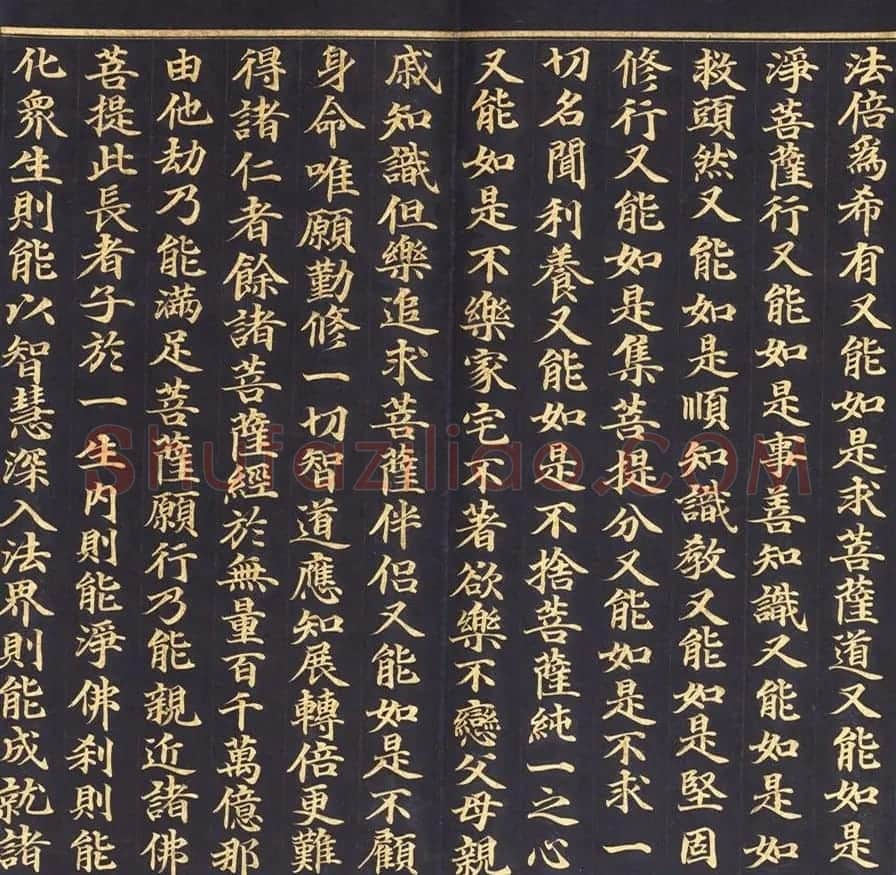 法倍爲希有又能如是求菩薩道又能如是
淨菩薩行又能如是事善知識又能如是如
救頭然又能如是順知識敎又能如是堅固
修行又能如是集菩提分又能如是不求一
切名聞利養又能如是不捨菩薩純一之心
又能如是不樂家宅不著欲樂不戀父母親
戚知識但樂追求菩薩伴侶又能如是不顧
身命唯願勤修一切智道應知展轉倍更難
得諸仁者餘諸菩薩經於無量百千萬億那
由他劫乃能滿足菩薩願行乃能親近諸佛
菩提此長者子於一生內則能淨佛刹則能
化衆生則能以智慧深入法界則能成就諸
Shufaziliao.COM